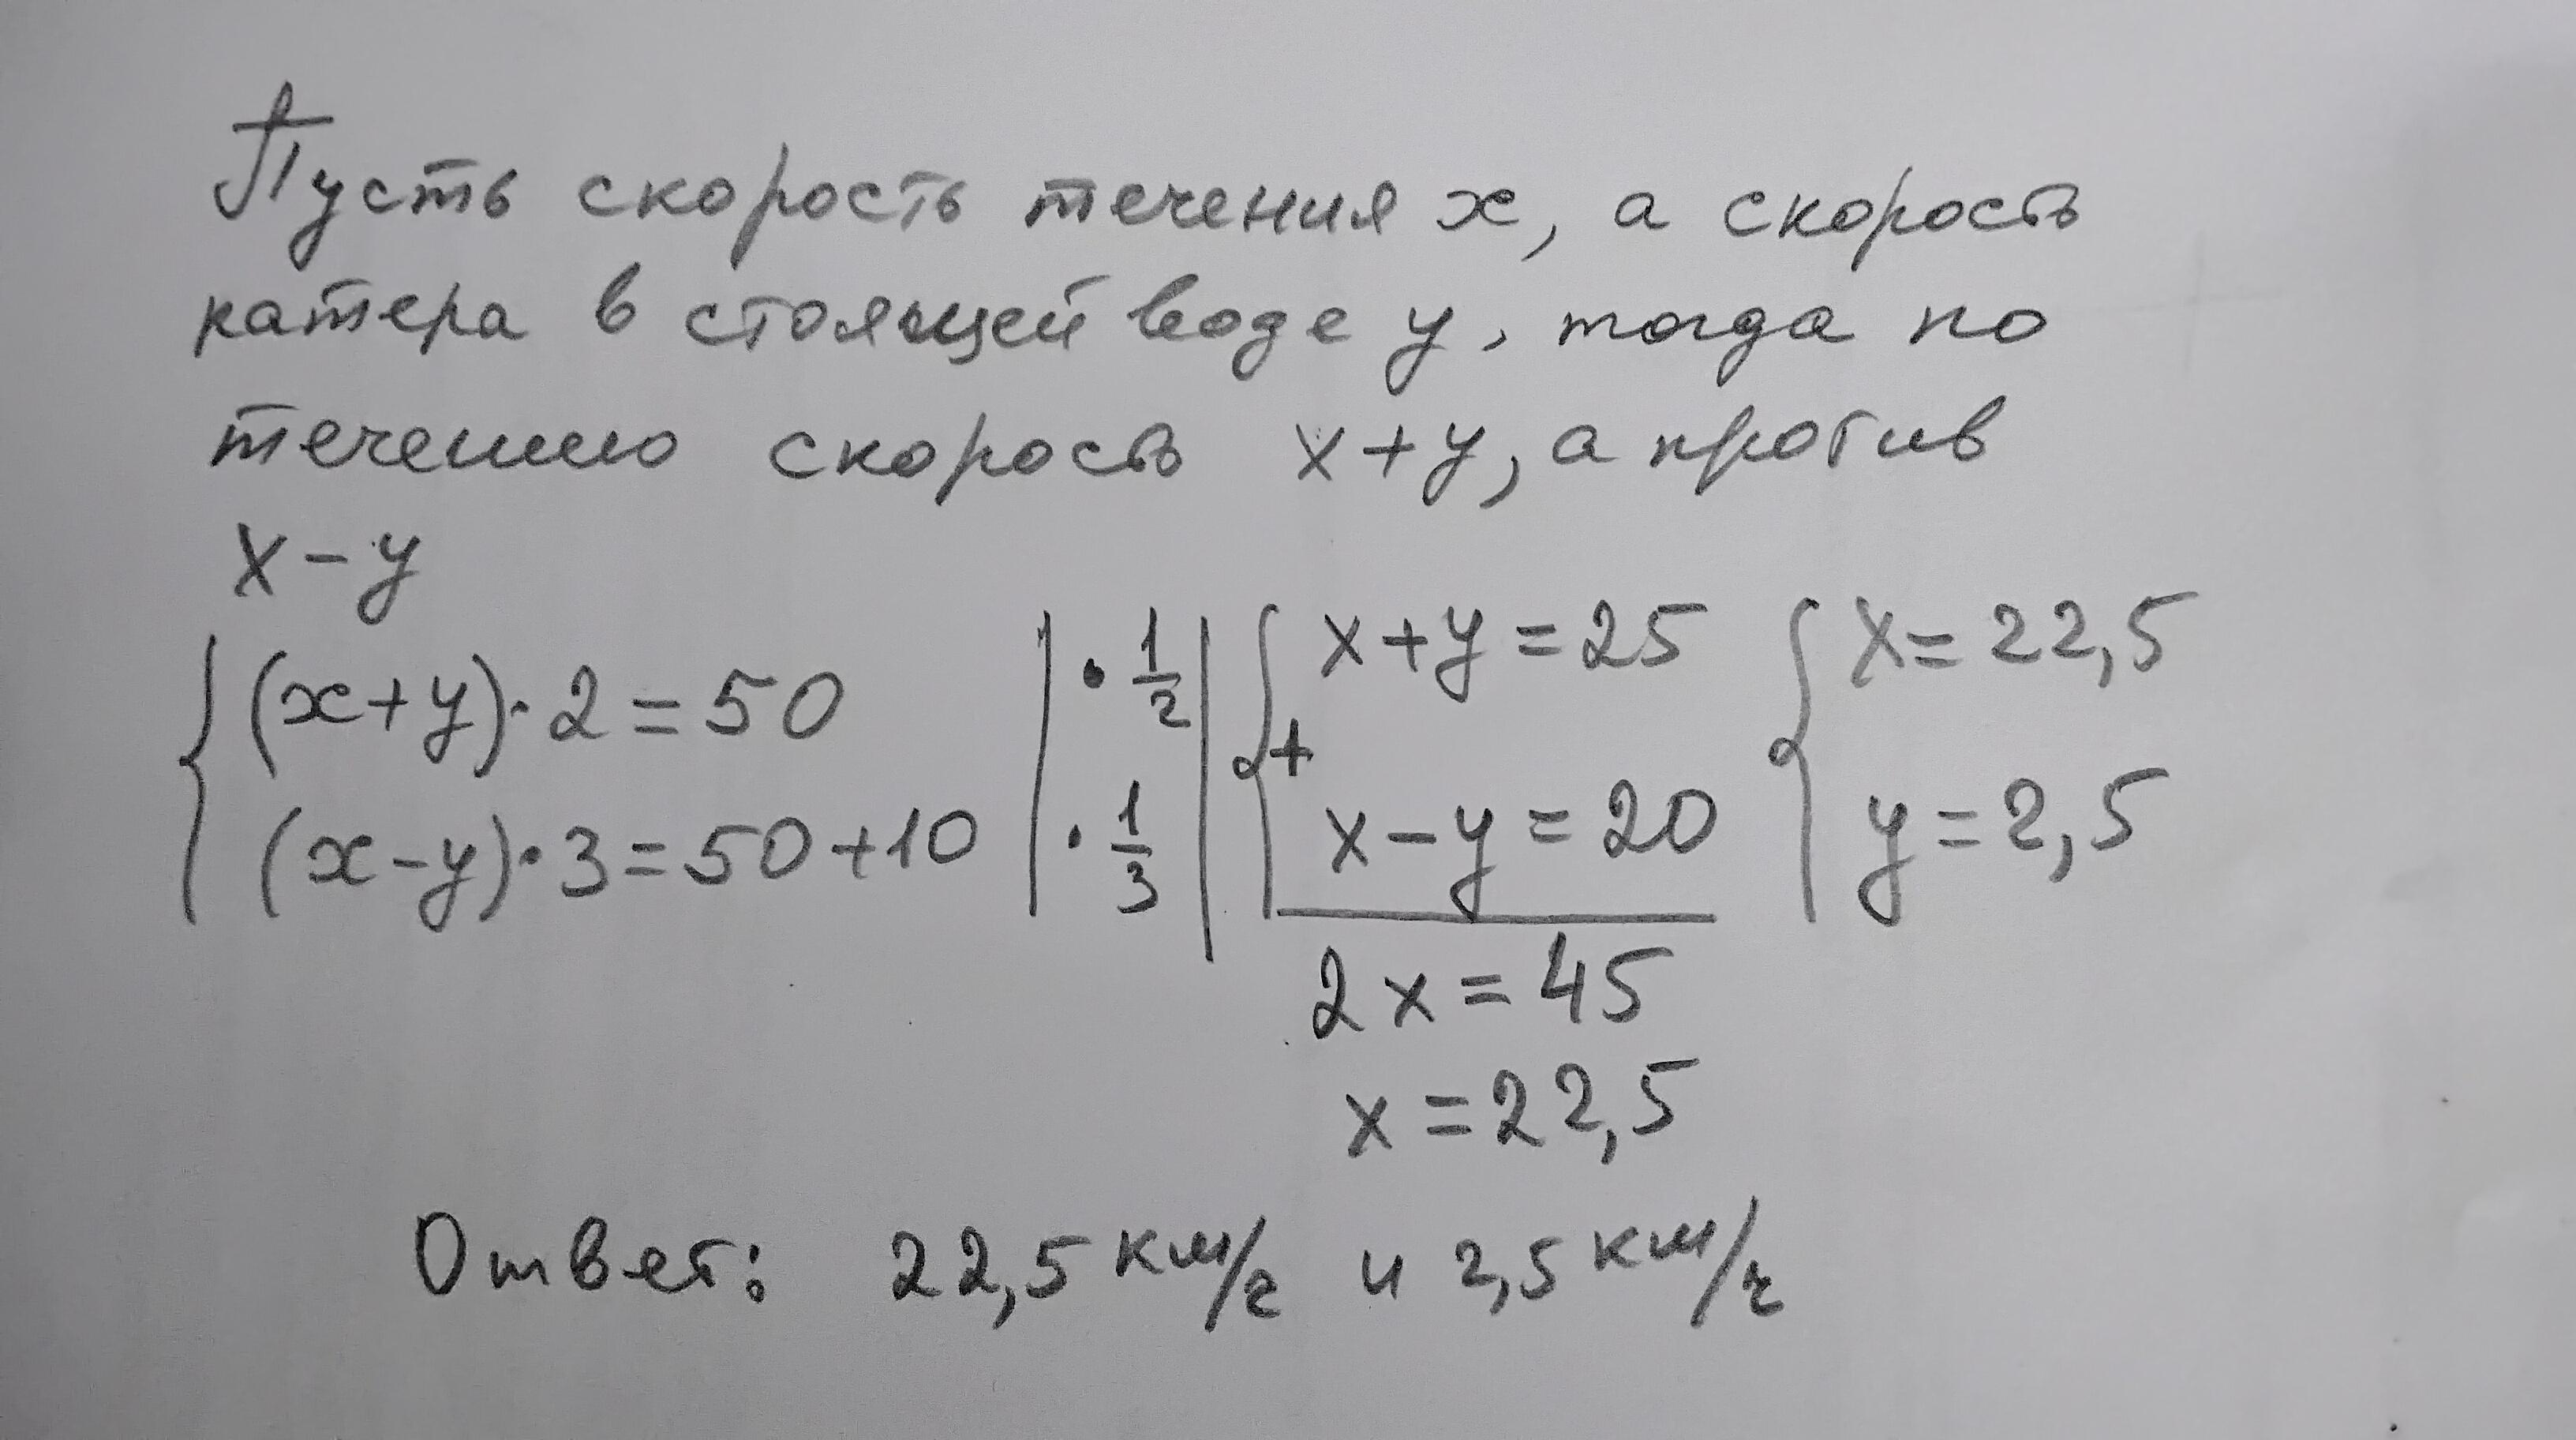 Пусть скорость течения x, а скорость
катера в стоящей воде y, тогда по
течению скорость x+y, а против
x-y
{ (x+y)·2=50 | ·1/2 | { x+y=25 { x=22,5
(x-y)·3=50+10 | ·1/3 | + x-y=20 y=2,5
2x=45
x=22,5
Ответ: 22,5 км/ч и 2,5 км/ч